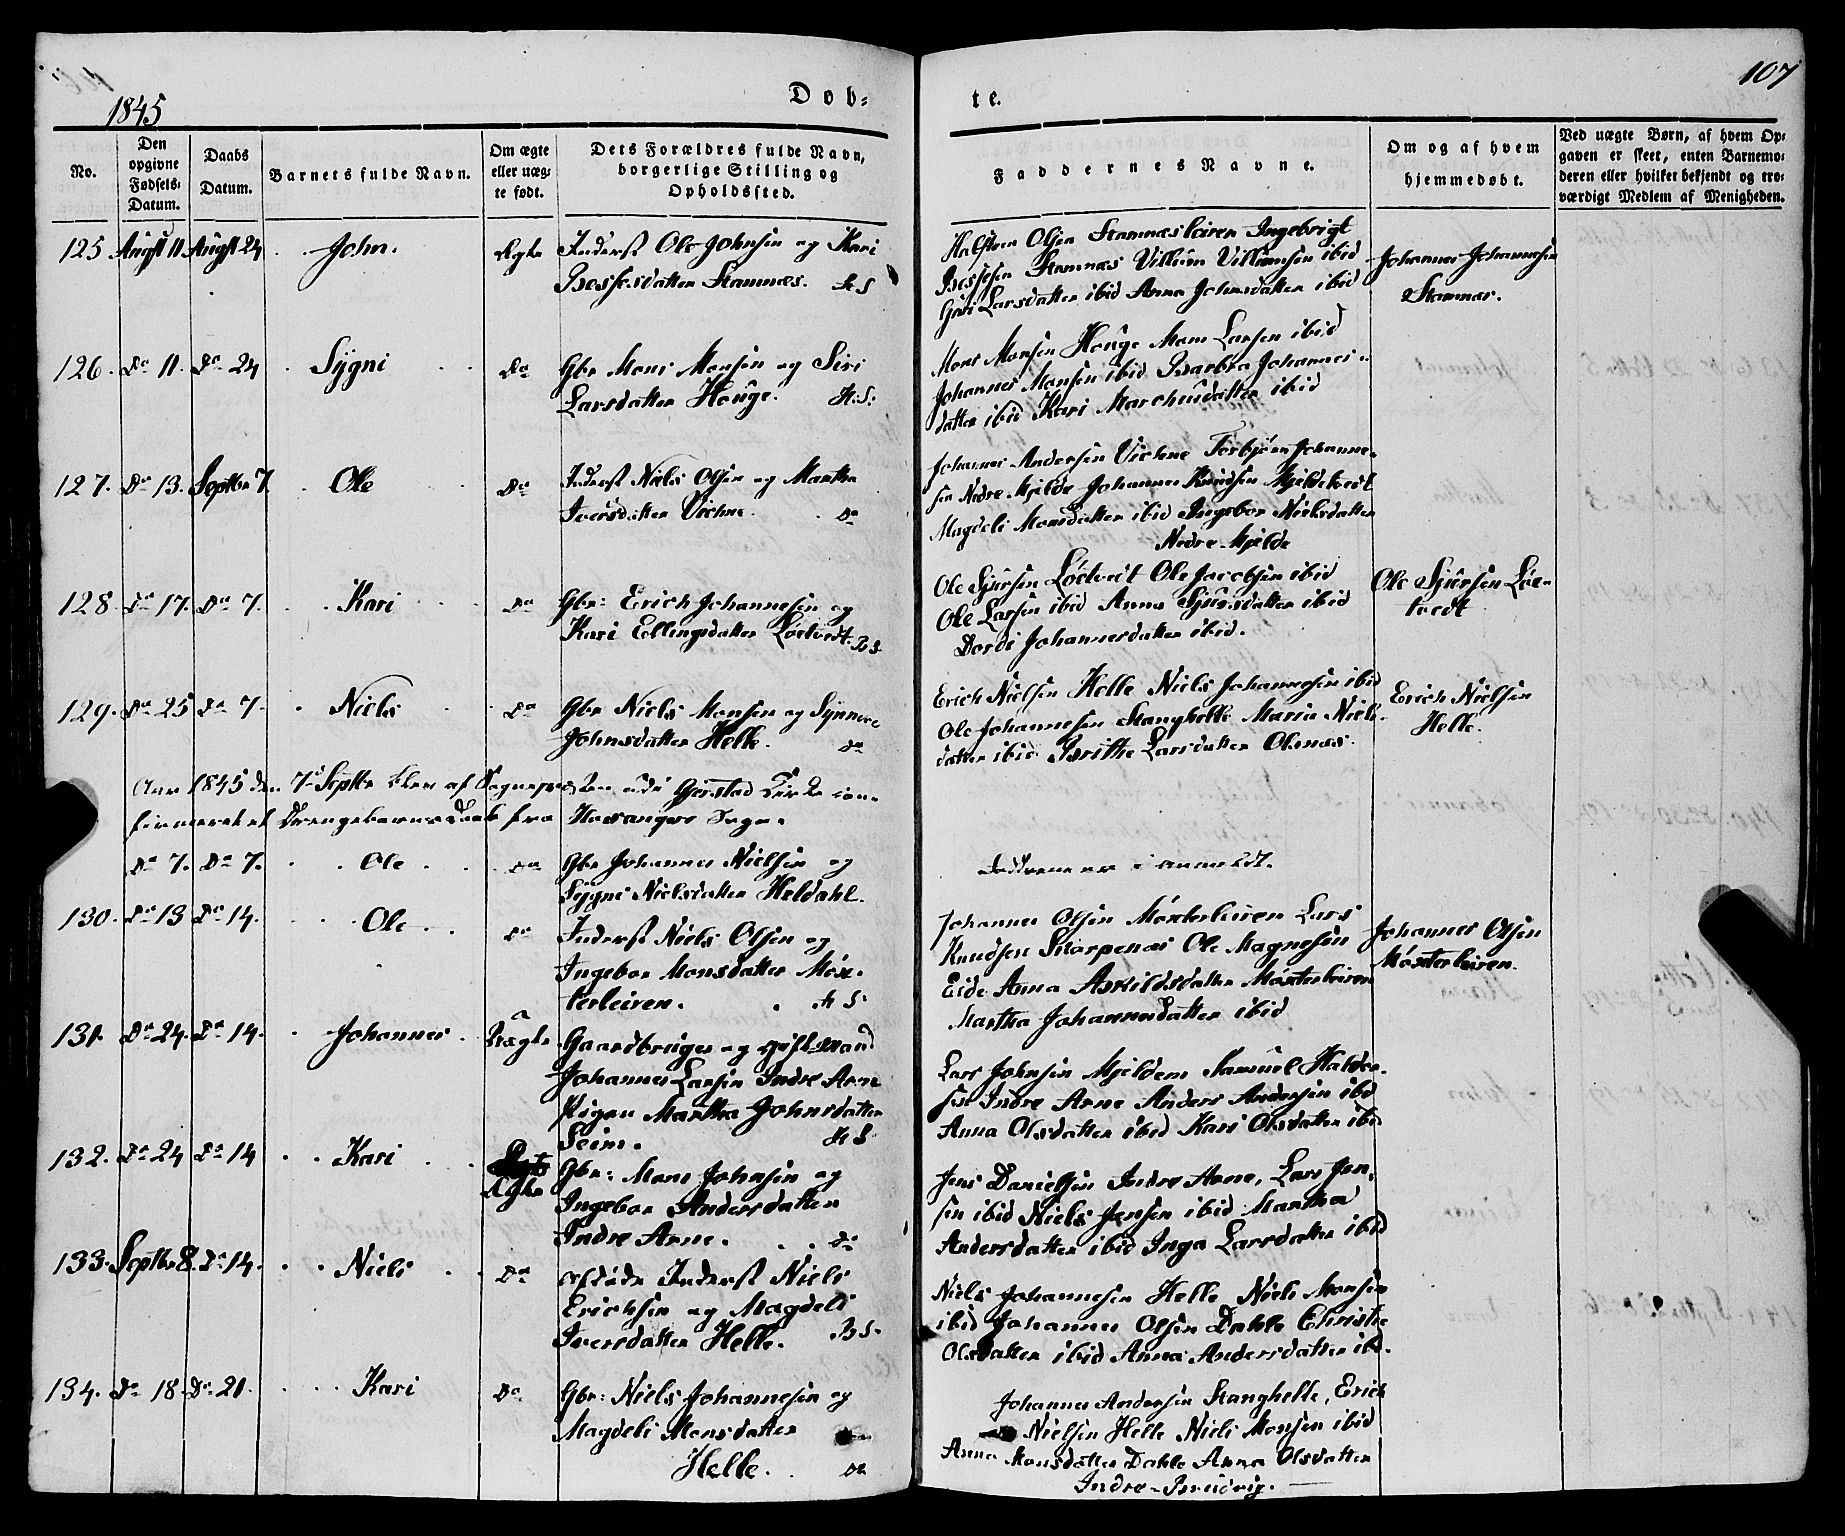 1845
Dob-
te.
107
No.
Den opgivne Fødsels-Datum.
Daabs Datum.
Barnets fulde Navn.
Om ægte eller uægte født.
Dets Forældres fulde Navn, borgerlige Stilling og Opholdssted.
Faddernes Navne.
Om og af hvem hjemmedøbt.
Ved uægte Børn, af hvem Op-
gaven er skeet, enten Barnemo-
deren eller hvilket bekjendt og tro-
værdigt Medlem af Menigheden.
125 Augst 11 Augst 24 John. Ægte Inderst Ole Johnsen og Kari
Bessesdatter Stamnæs. H S
Halsten Olsen Stamnæsleiren Ingebrigt
Bessesen Stamnæs Villum Villumsen ibid
Guri Larsdatter ibid Anna Johnsdatter ibid
Johannes Johannesen
Stamnæs.
126. Do 11. Do 24 Sygni Do Gbr Mons Monsen og Siri
Larsdatter Houge. H. S:
Mons Monsen Houge Mons Larsen ibid
Johannes Monsen ibid Barbra Johannes-
datter ibid Kari datter ibid
127. Do 13. Septbr 7. Ole Do Inderst Niels Olsen og Martha
Iversdatter Vichne. Do
Johannes Andersen Vichne Torbjörn Johanne-
sen Nedre Mjelde Johannes Knudsen Mjeldetvedt
Magdeli Monsdatter ibid Ingebor Nielsdatter
Nedre Mjelde
128. Do 17. Do 7. Kari Do Gbr: Erich Johannesen og
Kari Ellingsdatter Löetvedt. B S
Ole Sjursen Löetvedt Ole Jacobsen ibid
Ole Larsen ibid Anna Sjursdatter ibid
Dordi Johannesdatter ibid.
Ole Sjursen Löe-
tvedt
129. Do 25 Do 7. Niels Do Gbr Niels Monsen og Synneve
Johnsdatter Helle. Do
Erich Nielsen Helle Niels Johannesen ibid
Ole Johannesen Stanghelle Maria Niels-
datter ibid Brithe Larsdatter Olsnæs.
Erich Nielsen
Helle.
Aar 1845 den 7de Septbr blev af Sognepræsten udi Gjerstad Kirke con-
firmeret et Drengebarns Daab fra Hosangers Sogn.
Do 7. Do 7. Ole Do Gbr Johannes Nielsen og
Sygni Nielsdatter Heldahl.
Fadderne er anmeldt.
130. Do 13 Do 14. Ole Do Inderst Niels Olsen og
Ingebor Monsdatter Möx-
terleiren. H S
Johannes Olsen Möxterleiren Lars
Knudsen Skarpenæs Ole Magnesen
Eide Anna Askildsdatter Möxterleiren
Martha Johannesdatter ibid
Johannes Olsen
Möxterleiren.
131. Do 24. Do 14. Johannes Uægte Gaardbruger og gift Mand
Johannes Larsen Indre Arne
Pigen Martha Johnsdatter
Seim. H S
Lars Johnsen Mjeldem Samuel Haldor-
sen Indre Arne Anders Andersen ibid
Anna Olsdatter ibid Kari Olsdatter ibid
132. Do 24 Do 14 Kari Ægte Gbr: Mons Johnsen og
Ingebor Andersdatter
Indre Arne. Do
Jens Danielsen Indre Arne, Lars Jen-
sen ibid Niels Jensen ibid Martha
Andersdatter ibid Inga Larsdatter ibid
133. Septbr 8. Do 14. Niels Do afdöde Inderst Niels
Erichsen og Magdeli
Iversdatter Helle. B S.
Niels Johannesen Helle Niels Monsen
ibid Johannes Olsen Dahle Christie
Olsdatter ibid Anna Andersdatter ibd.
134. Do 18. Do 21. Kari Do Gbr: Niels Johannesen og
Magdeli Monsdatter
Helle. Do
Johannes Andersen Stanghelle, Erich
Nielsen Helle Niels Monsen ibid
Anna Monsdatter Dahle Anna Olsdatter
Indre-Bruvig.